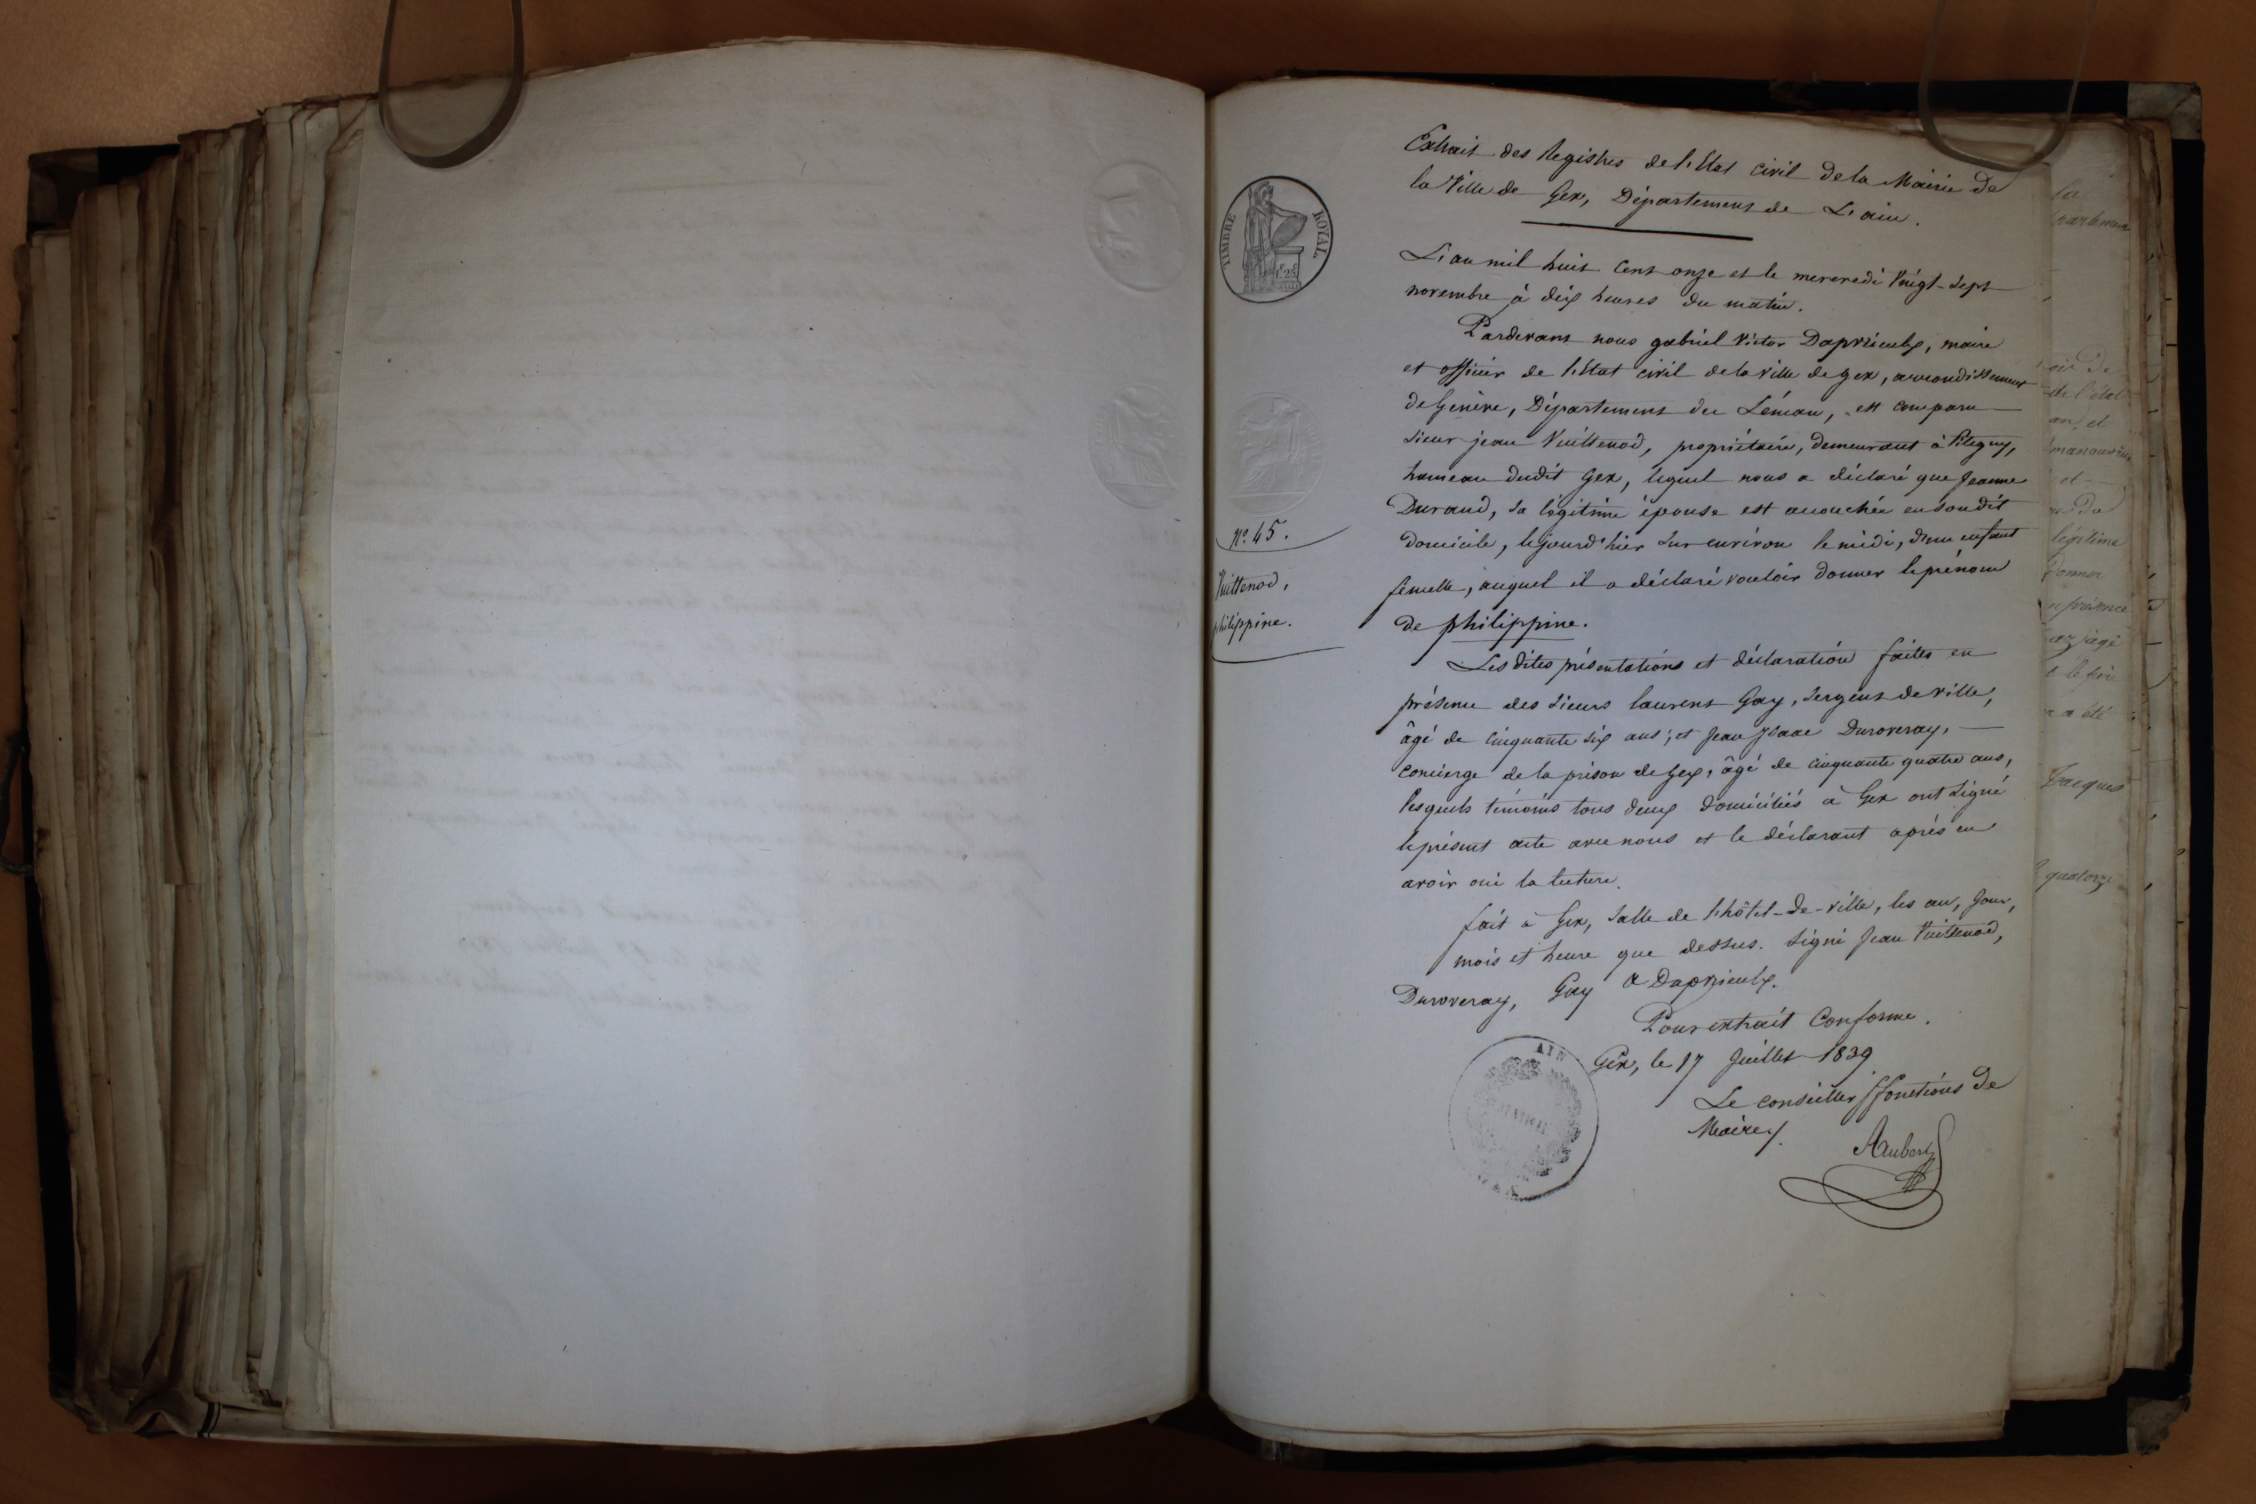 Extrait des Registres de l'Etat civil de la Mairie de
la Ville de Gex, Département de L'ain.
TIMBRE ROYAL
L'an mil huit cent onze et le mercredi vingt-sept
novembre à dix heures du matin.
Pardevant nous gabriel victor Daprieulx, maire
et officier de l'état civil de la ville de gex, arrondissement
de Genève, Département du Léman, est comparu
sieur jean Vuittenod, propriétaire, demeurant à Pitegny,
hameau dudit Gex, lequel nous a déclaré que Jeanne
Durand, sa légitime épouse est accouchée en sondit
domicile, le jourd'hier sur environ le midi, d'un enfant
N° 45.
femelle, auquel il a déclaré vouloir donner le prénom
Vuittenod,
philippine.
de philippine.
Les dites présentations et déclaration faites en
présence des sieurs laurent Gay, sergent de ville,
âgé de cinquante six ans; et Jean Isaac Duroveray,
concierge de la prison de Gex, âgé de cinquante quatre ans,
lesquels témoins tous deux domiciliés à Gex ont signé
le présent acte avec nous et le déclarant après en
avoir oui la lecture.
fait à Gex, salle de l'hôtel-de-ville, les an, jour,
mois et heure que dessus. signé Jean Vuittenod,
Duroveray, Gay & Daprieulx.
Pour extrait Conforme.
Gex, le 17 Juillet 1839
Le conseiller ffonctions de
Maire
Aubert
AIN
MAIRIE
légitime
donner
Jacques
quatorze